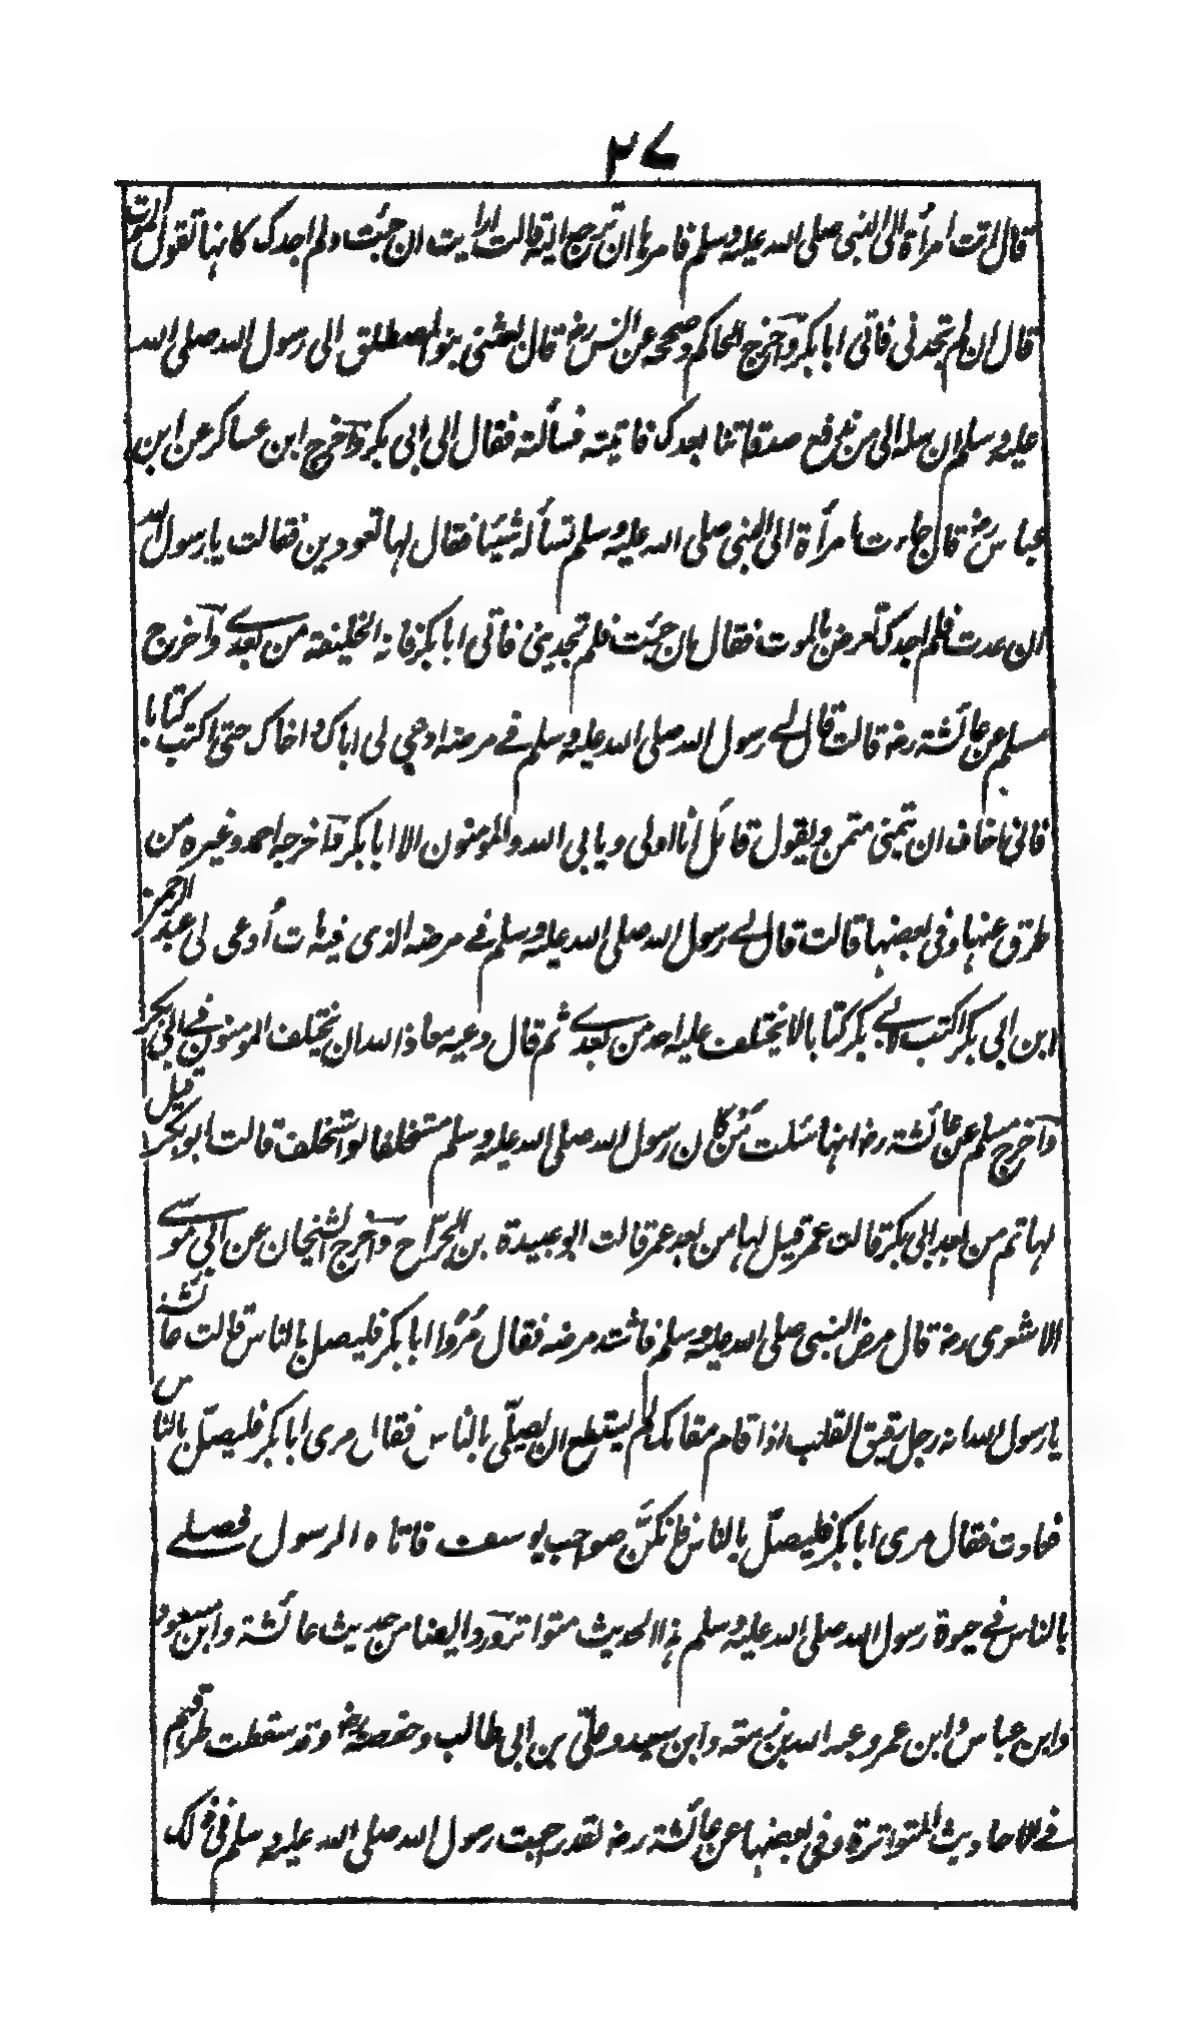 ٢٧
قال اتت امرأة الى النبي صلى الله عليه وسلم فامرها ان ترجع اليه قالت ارايت ان جئت ولم اجدك كانها تقول الموت
قال ان لم تجدني فأتى ابا بكر وآخرج الحاكم وصححه عن انس رضه قال بعثني بنو المصطلق الى رسول الله صلى الله
عليه وسلم ان سله الى من ندفع صدقاتنا بعدك فاتيته فسألته فقال الى ابي بكر وآخرج ابن عساكر عن ابن
عباس رضه قال جاءت امرأة الى النبي صلى الله عليه وسلم تسأله شيئا فقال لها تعودين فقالت يا رسول الله
ان عدت فلم اجدك تعرض بالموت فقال ان جئت فلم تجديني فأتى ابا بكر فانه الخليفة من بعدے وآخرج
مسلم عن عائشة رضه قالت قال لے رسول الله صلى الله عليه وسلم فے مرضه ادعي لى اباك واخاك حتى اكتب كتابا
فانى اخاف ان يتمنى متمن ويقول قائل انا اولى ويابى الله والمومنون الا ابا بكر وآخرجه احمد وغيره من
طرق عنها وفى بعضها قالت قال لے رسول الله صلى الله عليه وسلم فے مرضه الذى فيه مات أدعى لى عبد الرحمن
ابن ابى بكر اكتب لابے بكر كتابا لا يختلف عليه احد من بعدے ثم قال دعيه معاذ الله ان يختلف المومنون فے ابى بكر
وآخرج مسلم عن عائشة رضه انها سئلت من كان رسول الله صلى الله عليه وسلم مستخلفا لو استخلف قالت ابو بكر قيل
لها ثم من بعد ابى بكر قالت عمر قيل لها من بعد عمر قالت ابو عبيدة بن الجرّاح وآخرج الشيخان عن ابى موسے
الاشعرى رضه قال مرض النبي صلى الله عليه وسلم فاشتد مرضه فقال مُرُوا ابا بكر فليصل بالناس قالت عائشة
يا رسول الله انه رجل رقيق القلب اذا قام مقامك لم يستطع ان يصلّى بالناس فقال مرى ابا بكر فليصلّ بالناس
فعادت فقال مرى ابا بكر فليصلّ بالناس فانكنّ صواحب يوسف فاتاه الرسول فصلے
بالناس فے حيوة رسول الله صلى الله عليه وسلم هذا الحديث متواتر ورد ايضا من حديث عائشة وابن مسعود
وابن عباس وابن عمر وعبد الله بن زمعة وابن سعيد وعلّى بن ابى طالب وحفصة رضه وقد سقطت طرقهم
فے الاحاديث المتواترة وفى بعضها عن عائشة رضه لقد رجعت رسول الله صلى الله عليه وسلم فى ذلك